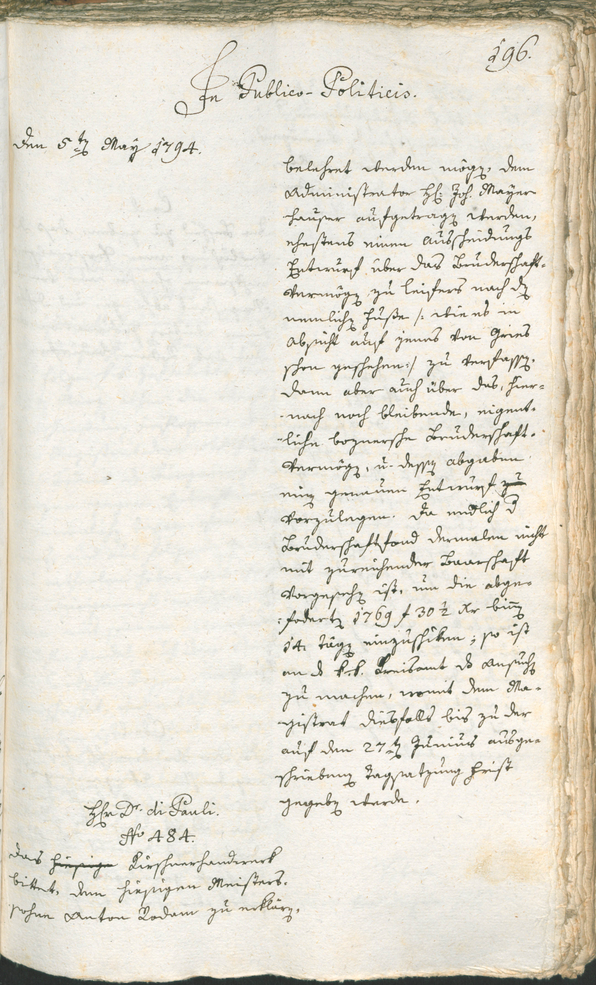 196.
In Publico-Politicis.
den 5t May 1794.
belehret werden mög, dem
Administrator H: Joh. Mayer
hauser aufgetrag werden,
ehestens einen Ausscheidungs
Entwurf über das Bruderschaft-
vermög zu leifers nach d
nemlich Fuße /: wie es in
Absicht auf jenes von Gries
schon geschehen :/ zu verfass,
dann aber auch über das, hier-
-nach noch bleibende, eigent-
-liche boznersche Bruderschaft-
vermög, u: dess abgaben
ein genauen Entwurf zu
vorzulegen. Da endlich d
Bruderschaftsfond dermalen nicht
mit zureichender Baarschaft
vorgeseh ist, um die abge-
:fodert 1769 f 30 ½ Xr binn
14. täg einzuschiken; so ist
an ds k:k: Kreisamt ds Ansuch
zu machen, womit dem Ma-
gistrat diesfalls bis zu der
auf den 27t Junius ausge-
schrieben Tagsatzung Frist
gegeb werde.
H: Dr. di Pauli.
No 484.
Das hiesige Kirschnerhandwerk
bittet, den hiesigen Meisters-
sohne Anton Rodam zu erklär,